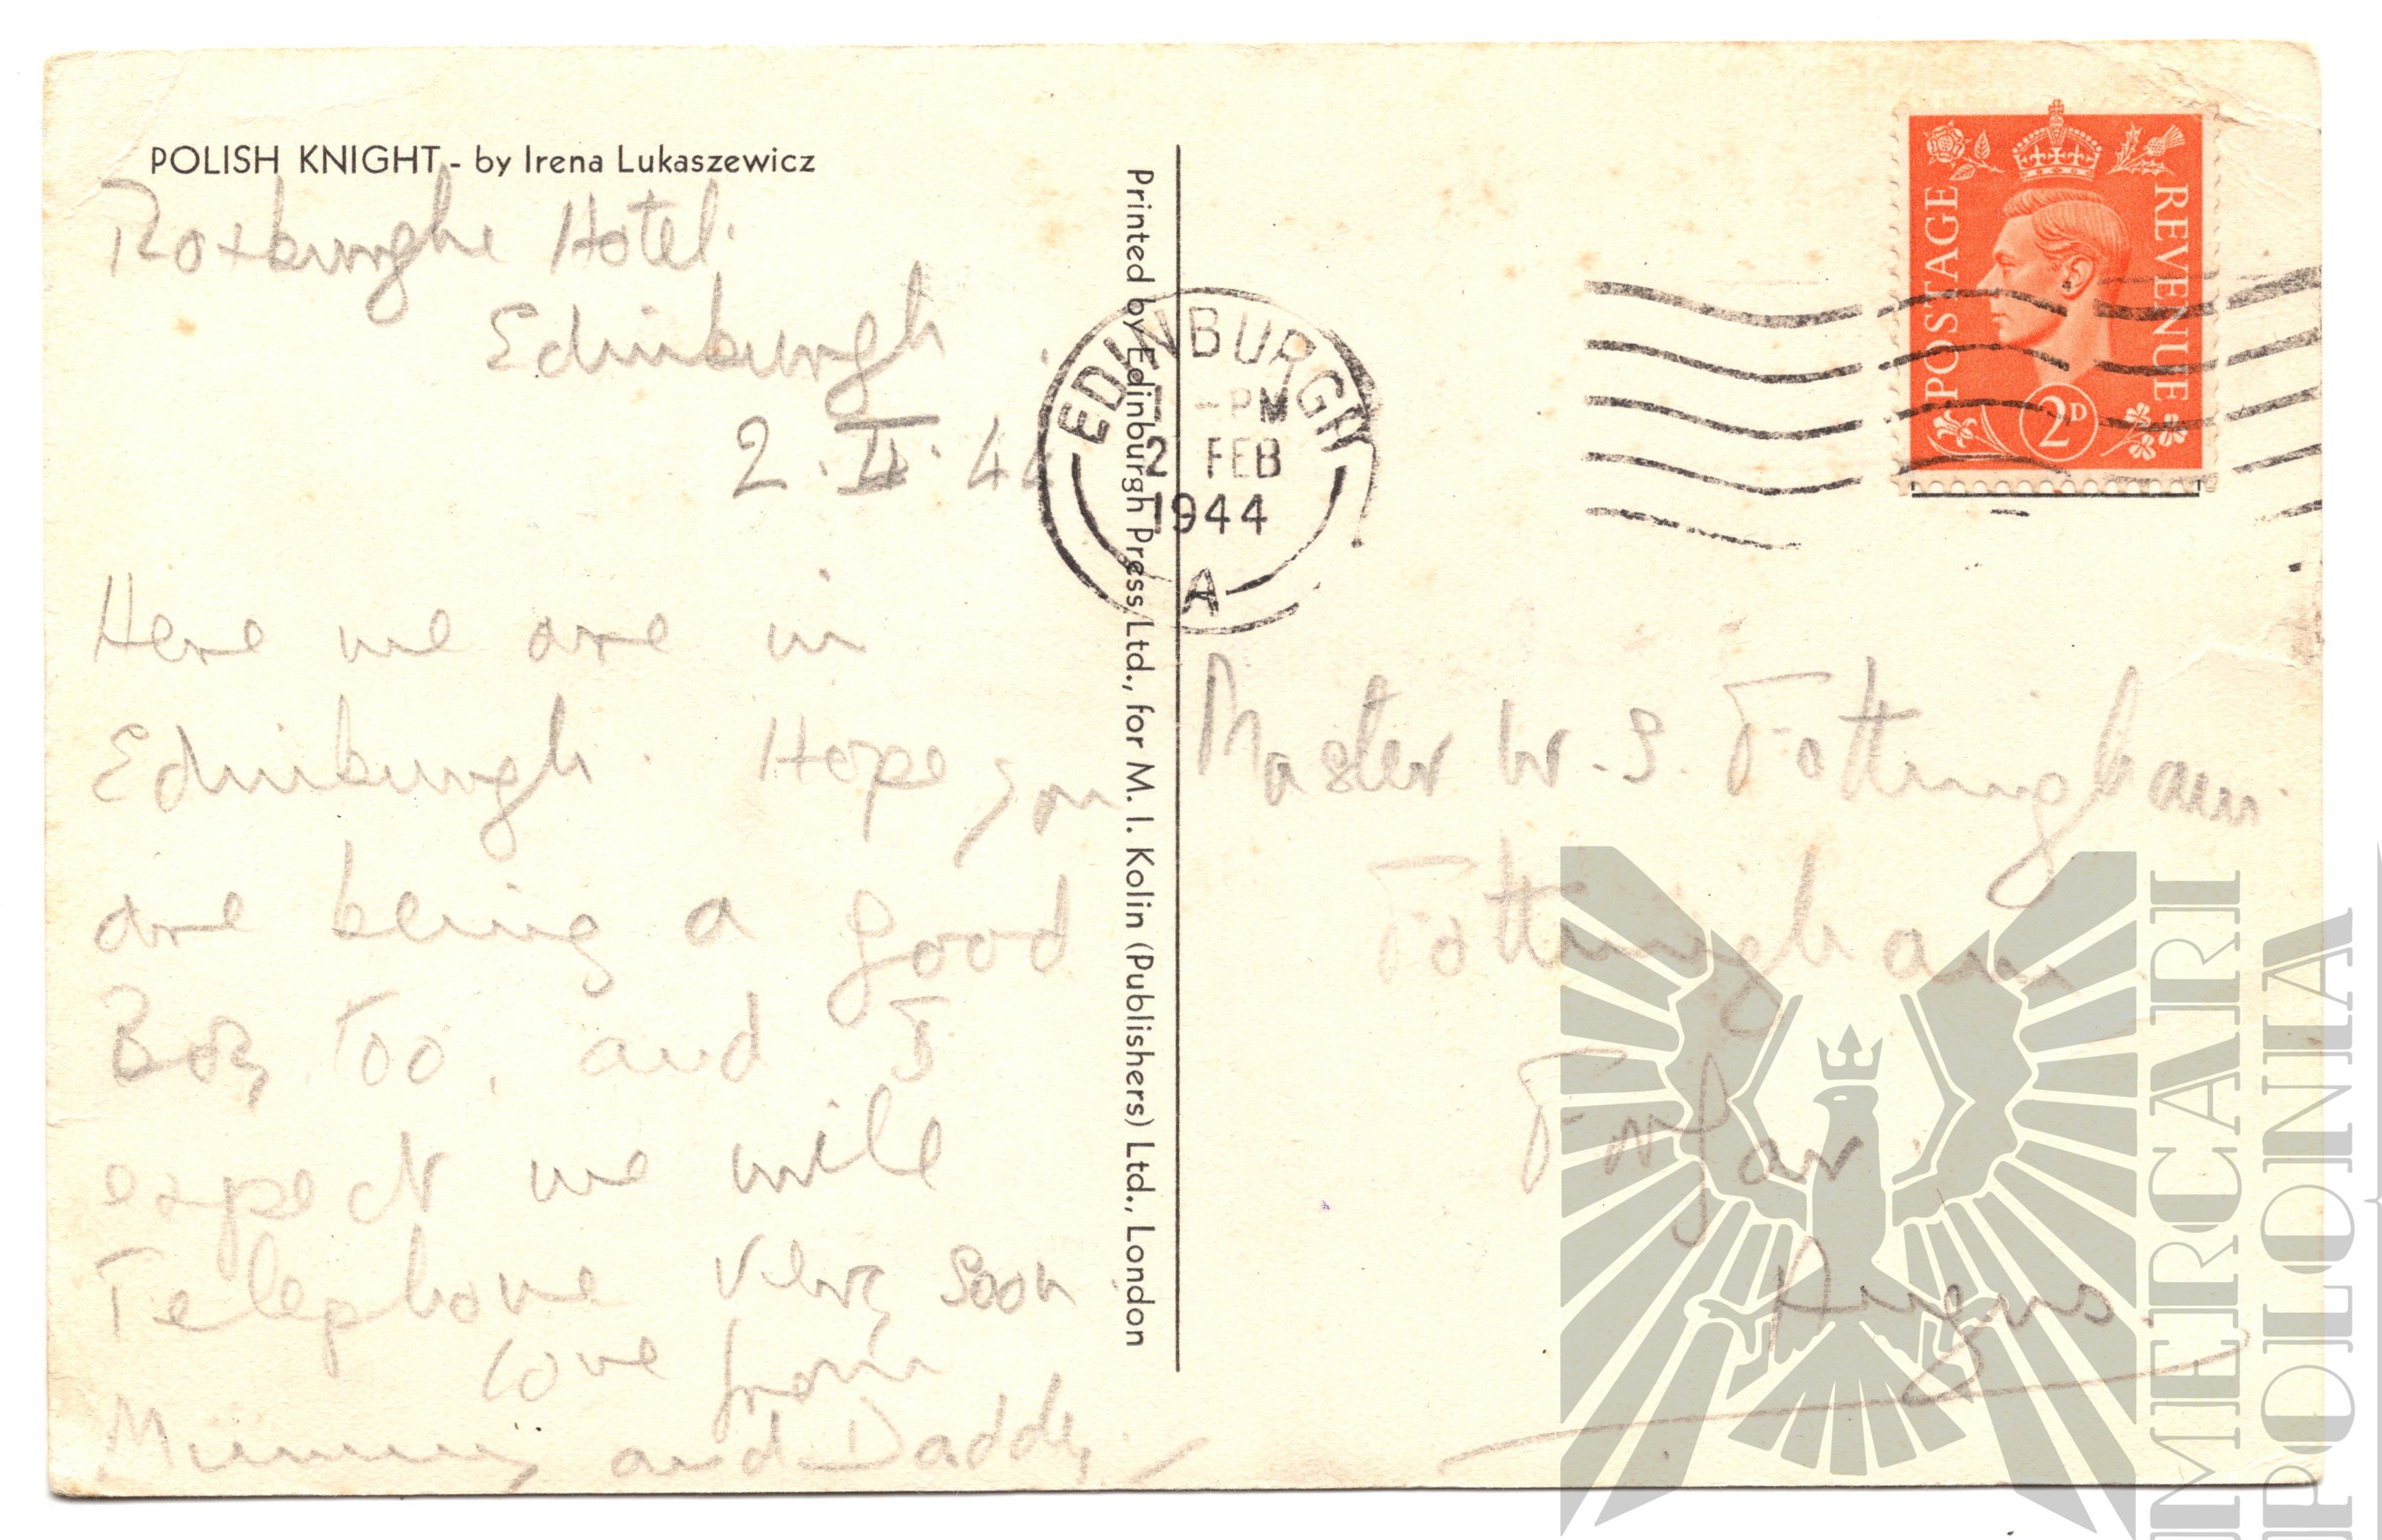 POLISH KNIGHT - by Irena Lukaszewicz
Roxburghe Hotel.
Edinburgh
2.II.44
Here we are in
Edinburgh. Hope you
are being a good
Boy, too, and I
expect we will
Telephone very soon.
love from
Mummy and Daddy
Printed by Edinburgh Press Ltd., for M. I. Kolin (Publishers) Ltd., London
EDINBURGH
-PM
2 FEB
1944
A
POSTAGE
REVENUE
2D
Master W. S. Fottingham.
Fottingham
Forfar.
Angus.
IMERCARI
POLONIA